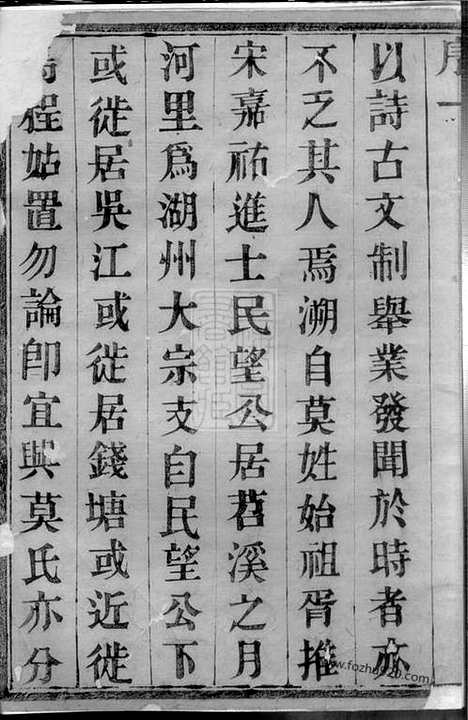 序一
以詩古文制舉業發聞於時者亦
不乏其人焉溯自莫姓始祖胥推
宋嘉祐進士民望公居苕溪之月
河里為湖州大宗支自民望公下
或徙居吳江或徙居錢塘或近徙
程姑置勿論即宜與莫氏亦分
www.fozhu920.com